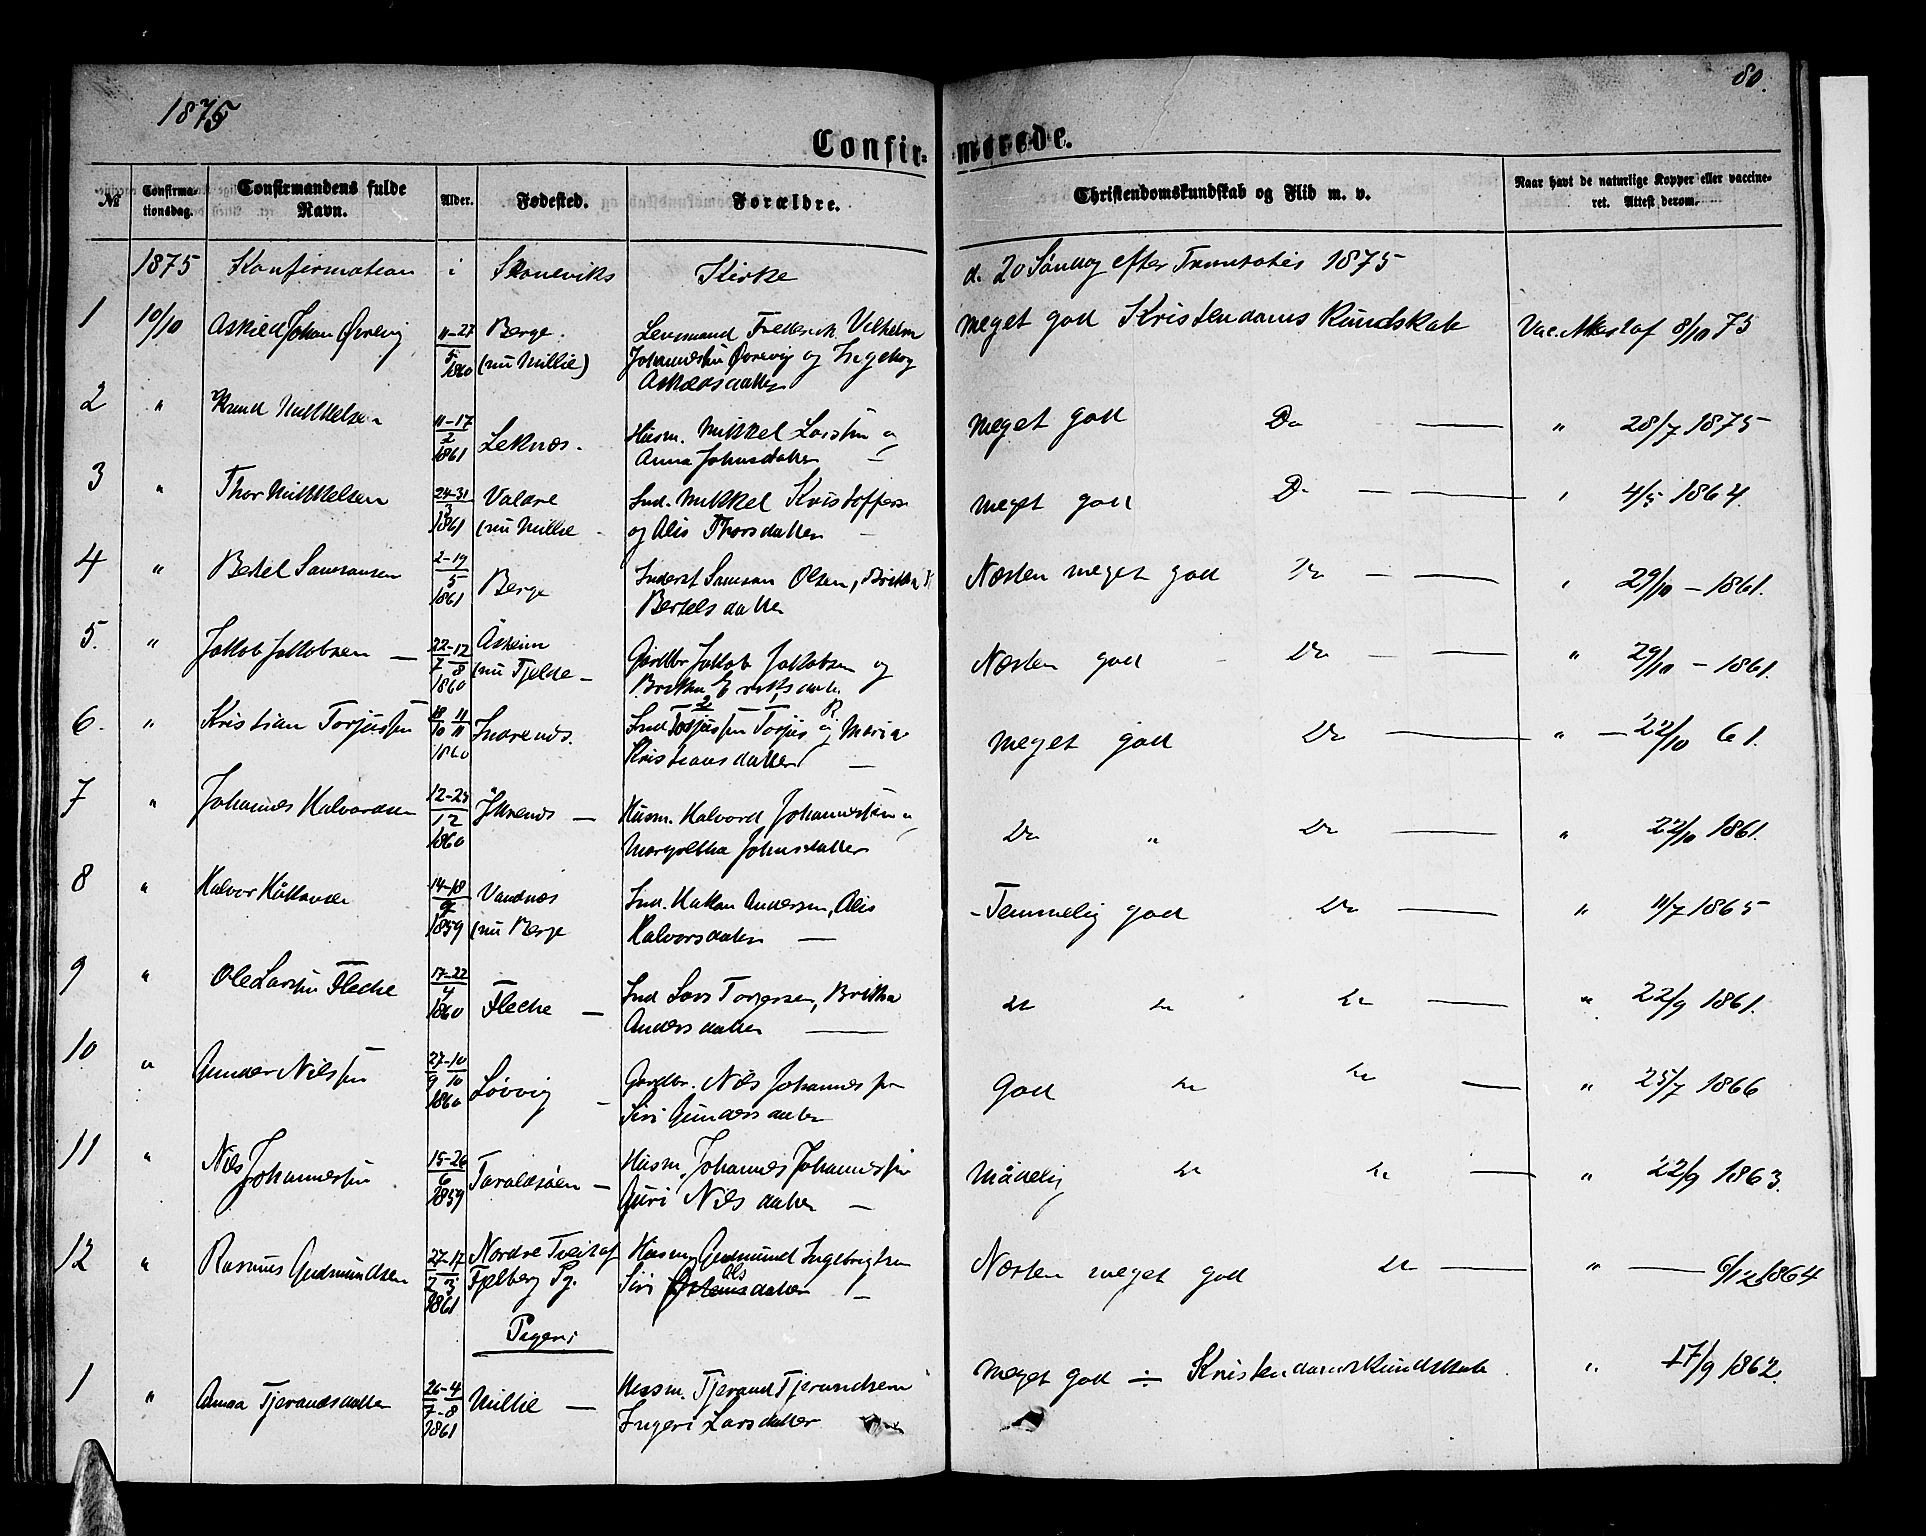 1875
80.
Confirmerede.
No Confirmationsdag. Confirmandens fulde Navn. Alder. Fødested. Forældre. Christendomskundskab og Flid m. v. Naar havt de naturlige Kopper eller vaccineret. Attest derom.
1875 Konfirmation i Skoneviks Kirke d. 20 Søndag efter Trinitatis 1875
1 10/10 Askild Johan Øvrevig 11-27/5 1860 Berge. (nu Millie) Lensmand Frederik Vilhelm Johannessen Øvrevig og Ingeborg meget god Kristendoms Kundskab Vac. Attest af 8/10 75
2 " Knud Mikkelsen 11-17/2 1861 Leknæs. Husm. Mikkel Larsen Anna Johnsdatter meget god Do — " 28/7 1875
3 " Thor Mikkelsen 24-31/3 1861 Valdre (nu Millie - Ind. Mikkel Kristoffers og Alis Thorsdatter meget god Do — " 4/5 1864.
4 " Bertel Samsonsen 2-19/5 1861 Berge Inderst Samson Olsen, Britha Bertelsdatter Næsten meget god Do — " 29/10 - 1861.
5. " Jakob Jakobsen — 22/7-12/8 1860 Åkeim (nu Fjelde - Gårdbr Jakob Jakobsen og Britha Eriksdatter Næsten god - Do — " 29/10 - 1861.
6. " Kristian Torjussen 11/11 1860 Indrenæs. Ind Torjussen Torjus og Maria Kristiansdatter — meget god Do — " — 22/10 61.
7 " Johannes Halvordsen 12-25/12 1860 — Husm. Halvord Johannessen Margretha Johnsdatter Do " Do — " 22/10 1861.
8 " Halvor 14-18/9 1859 Vandnæs (nu Berge Ind. Hakon Andersen, Alis Halvorsdatter — - Temmelig god Do — " 11/7 1865
9 " Ole Larsen Fleche 17-22/4 1860 Fleche — Ind Lars Torgersen, Britha Andersdatter — Do Do Do — " 22/9 1861.
10. " Gunder Nilssen 27/9-10/10 1860 Løvvig — Gardbr. Nils Johannessen Siri Gundersdatter God Do Do — " 25/7 1866
11 " Nils Johannessen 15-26/6 1859 Taraldsøen — Husm. Johannes Johannessen Guri Nilsdatter — Mådelig Do Do — " 22/9 1863.
12 " Rasmus Gudmundsen 27/2-17/3 1861 Nordre Tveit af Fjelberg Pg. Husm. Gudmund Ingebrigtsen Siri Olsdatter — Næsten meget god Do — " — 6/12 1864
Piger:
1 " Anna Tjerandsdatter 26/7-4/8 1861 Millie — Husm. Tjerand Tjerandsen Ingeri Larsdatter meget god ÷ Kristendomskundskab " 17/9 1862.